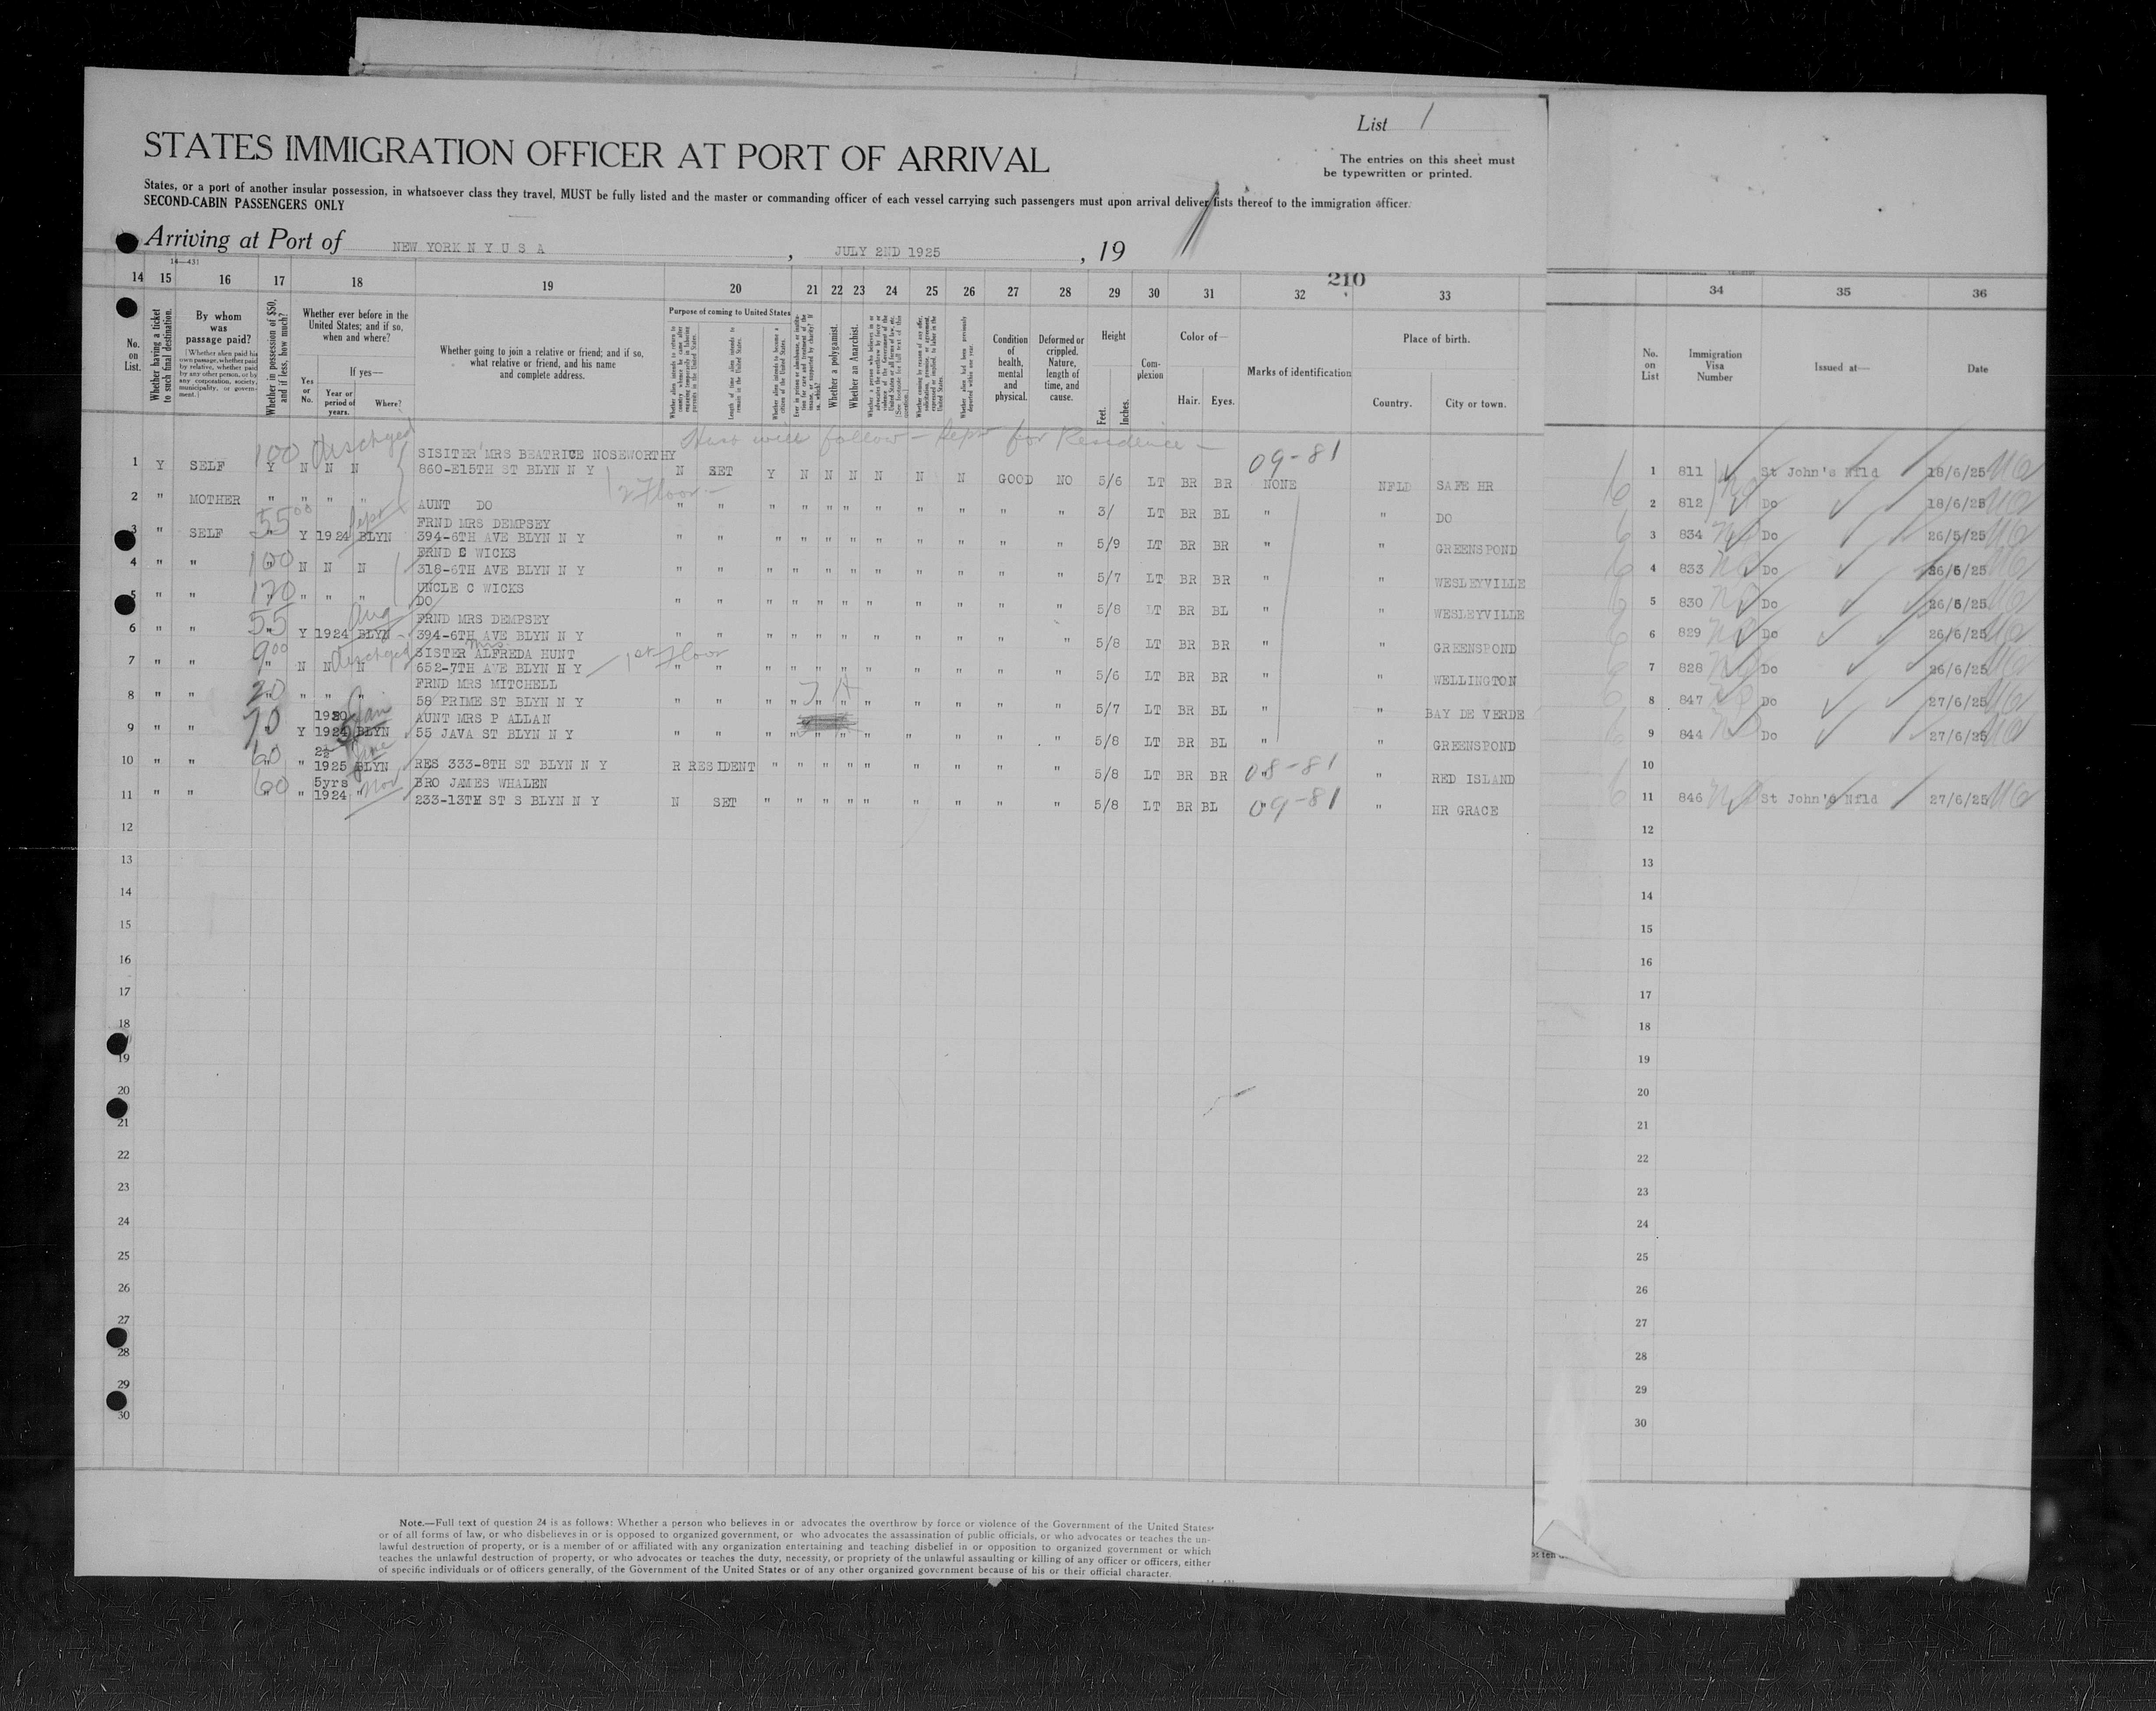 List 1
STATES IMMIGRATION OFFICER AT PORT OF ARRIVAL
The entries on this sheet must
be typewritten or printed.
States, or a port of another insular possession, in whatsoever class they travel, MUST be fully listed and the master or commanding officer of each vessel carrying such passengers must upon arrival deliver lists thereof to the immigration officer.
SECOND-CABIN PASSENGERS ONLY
Arriving at Port of NEW YORK N Y U S A , JULY 2ND 1925 , 19
14—431
210
14 15 16 17 18 19 20 21 22 23 24 25 26 27 28 29 30 31 32 33 34 35 36
No. on List.
Whether having a ticket to such final destination.
By whom was passage paid?
(Whether alien paid his own passage, whether paid by relative, whether paid by any other person, or by any corporation, society, municipality, or government.)
Whether in possession of $50, and if less, how much?
Whether ever before in the United States; and if so, when and where?
Yes or No.
If yes—
Year or period of years.
Where?
Whether going to join a relative or friend; and if so, what relative or friend, and his name and complete address.
Purpose of coming to United States
Length of time alien intends to remain in the United States.
Whether alien intends to become a citizen of the United States.
Whether a polygamist.
Whether an Anarchist.
Condition of health, mental and physical.
Deformed or crippled. Nature, length of time, and cause.
Height
Feet. Inches.
Complexion
Color of—
Hair. Eyes.
Marks of identification
Place of birth.
Country. City or town.
No. on List
Immigration Visa Number
Issued at—
Date
100 dischged Husb will follow - for Residence - 09-81
SISITER MRS BEATRICE NOSEWORTHY
1 Y SELF Y N N N 860-E15TH ST BLYN N Y N SET Y N N N N N N GOOD NO 5/6 LT BR BR NONE NFLD SAFE HR 1 811 St John's Nfld 18/6/25
2 Floor -
2 " MOTHER " " " " AUNT DO " " " " " " " " " " " 3/ LT BR BL " " DO 2 812 Do 18/6/25
55 00 FRND MRS DEMPSEY
3 " SELF " Y 1924 BLYN 394-6TH AVE BLYN N Y " " " " " " " " " " " 5/9 LT BR BR " " GREENSPOND 3 834 Do 26/6/25
100 FRND C WICKS
4 " " " N N N 318-6TH AVE BLYN N Y " " " " " " " " " " " 5/7 LT BR BR " " WESLEYVILLE 4 833 Do 26/6/25
120 UNCLE C WICKS
5 " " " " " " DO " " " " " " " " " " " 5/8 LT BR BL " " WESLEYVILLE 5 830 Do 26/6/25
55 Aug FRND MRS DEMPSEY
6 " " " Y 1924 BLYN 394-6TH AVE BLYN N Y " " " " " " " " " " " 5/8 LT BR BR " " GREENSPOND 6 829 Do 26/6/25
9 00 dischged SISTER Mrs ALFREDA HUNT
7 " " " N N N 652-7TH AVE BLYN N Y 1st Floor " " " " " " " " " " " 5/6 LT BR BR " " WELLINGTON 7 828 Do 26/6/25
20 FRND MRS MITCHELL
8 " " " " " " 58 PRIME ST BLYN N Y " " " " " " " " " " " 5/7 LT BR BL " " BAY DE VERDE 8 847 Do 27/6/25
70 1920 Jan AUNT MRS P ALLAN
9 " " Y 1924 BLYN 55 JAVA ST BLYN N Y " " " " " " " " " " " 5/8 LT BR BL " " GREENSPOND 9 844 Do 27/6/25
60 2½
10 " " " 1925 BLYN RES 333-8TH ST BLYN N Y R RESIDENT " " " " " " " " " 5/8 LT BR BR 08-81 " RED ISLAND 10
60 5yrs Nov BRO JAMES WHALEN
11 " " " 1924 " 233-13TH ST S BLYN N Y N SET " " " " " " " " " 5/8 LT BR BL 09-81 " HR GRACE 11 846 St John's Nfld 27/6/25
12 12
13 13
14 14
15 15
16 16
17 17
18 18
19 19
20 20
21 21
22 22
23 23
24 24
25 25
26 26
27 27
28 28
29 29
30 30
Note.—Full text of question 24 is as follows: Whether a person who believes in or advocates the overthrow by force or violence of the Government of the United States
or of all forms of law, or who disbelieves in or is opposed to organized government, or who advocates the assassination of public officials, or who advocates or teaches the un-
lawful destruction of property, or is a member of or affiliated with any organization entertaining and teaching disbelief in or opposition to organized government or which
teaches the unlawful destruction of property, or who advocates or teaches the duty, necessity, or propriety of the unlawful assaulting or killing of any officer or officers, either
of specific individuals or of officers generally, of the Government of the United States or of any other organized government because of his or their official character.